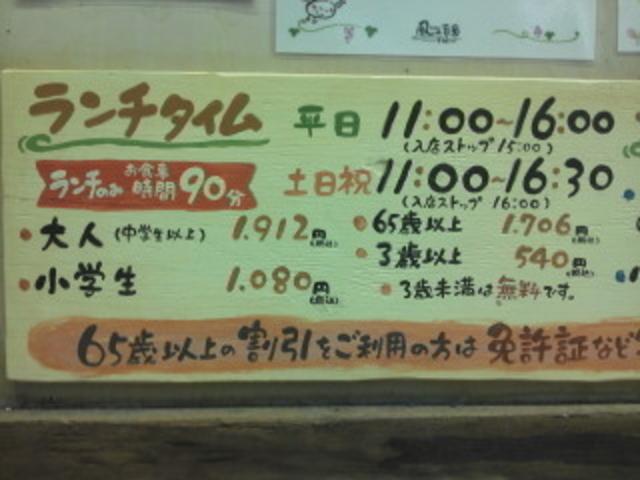 ランチタイム 平日 11:00~16:00
(入店ストップ 15:00)
ランチのみ お食事時間 90分 土日祝 11:00~16:30
(入店ストップ 16:00)
•大人(中学生以上) 1.912円(税込) •65歳以上 1.706円(税込)
•小学生 1.080円(税込) •3歳以上 540円(税込)
•3歳未満は無料です。
65歳以上の割引をご利用の方は 免許証など